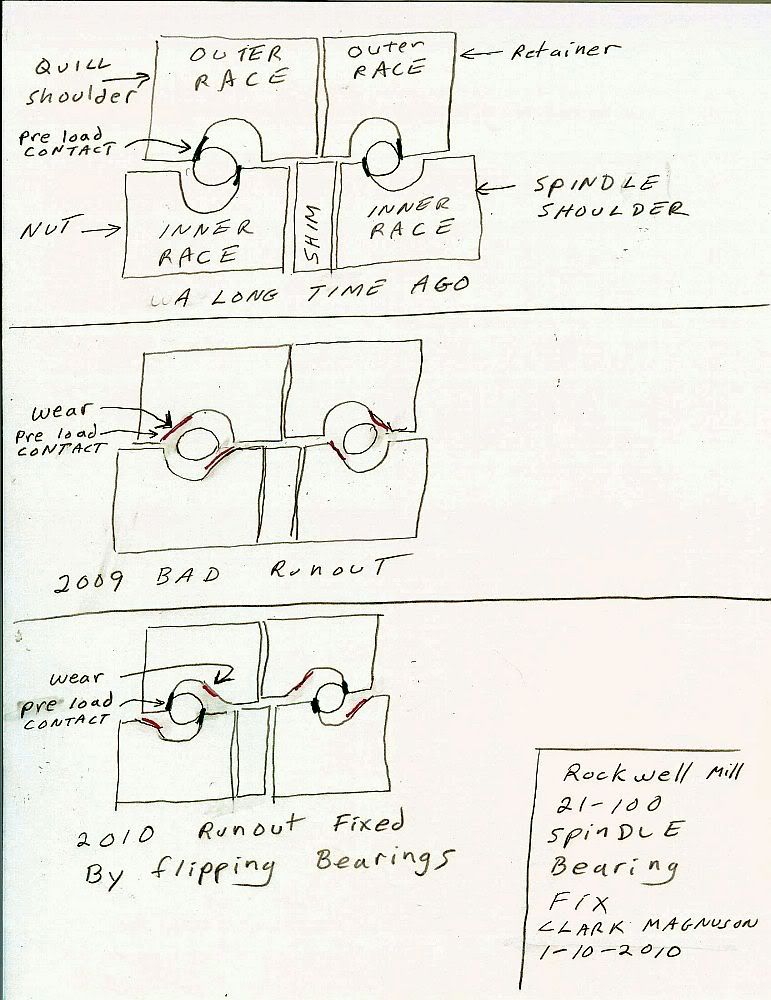 QUILL shoulder
OUTER RACE
OUTER RACE
Retainer
Pre load CONTACT
NUT
INNER RACE
SHIM
INNER RACE
SPINDLE SHOULDER
A LONG TIME AGO
wear
Pre load CONTACT
2009 BAD RUNOUT
wear
Pre load CONTACT
2010 Runout Fixed
By flipping Bearings
Rockwell Mill
21-100
SPINDLE
Bearing
Fix
CLARK MAGNUSON
1-10-2010